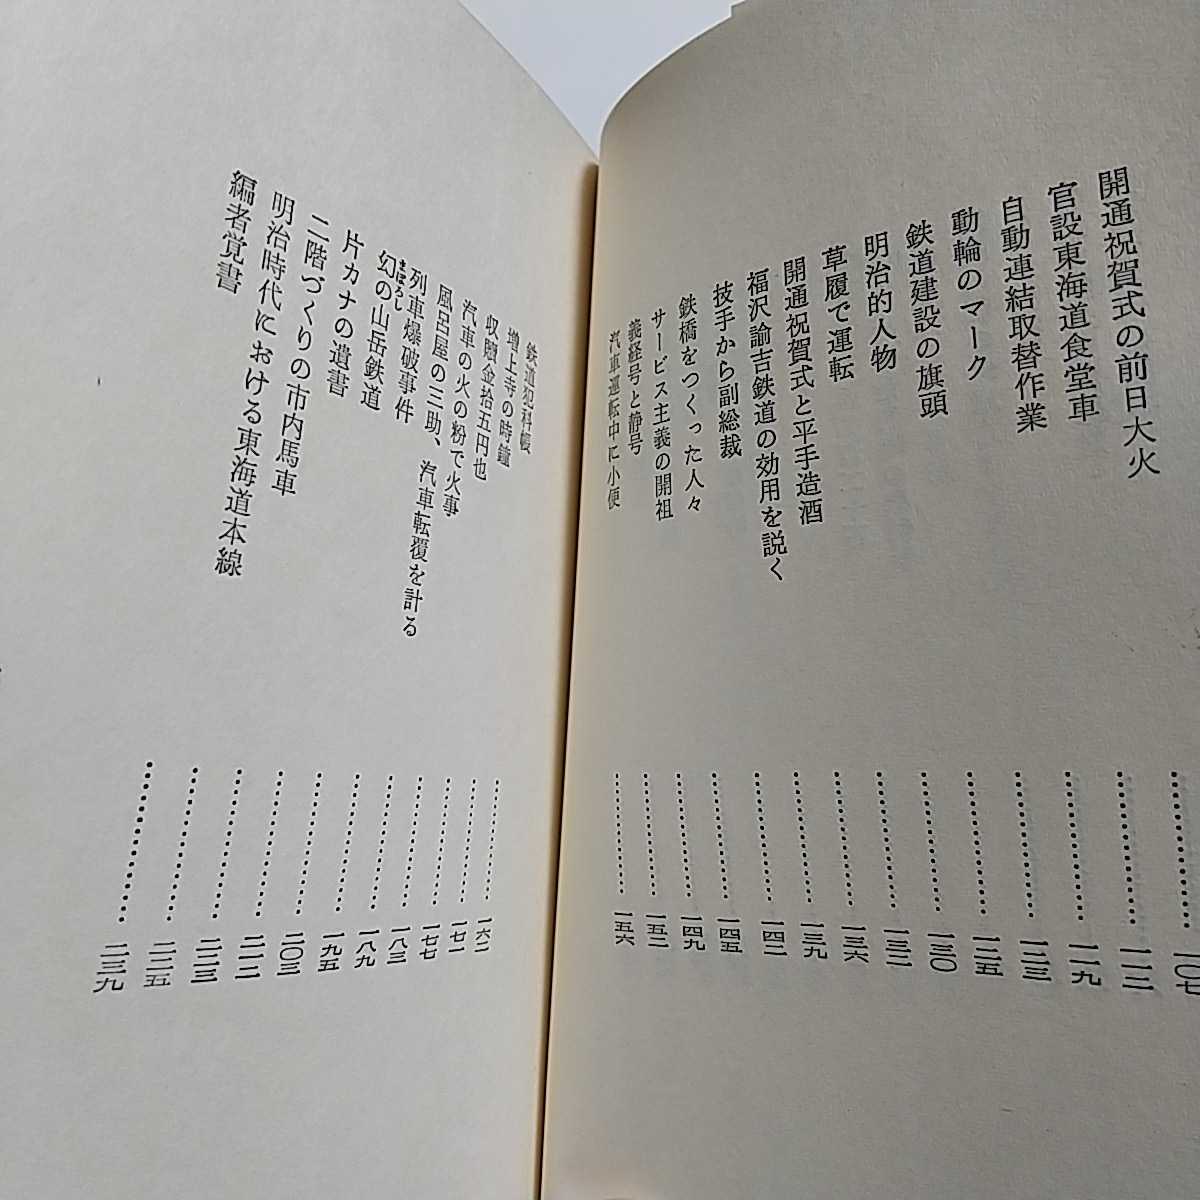 開通祝賀式の前日大火……………一〇七
官設東海道食堂車……………一一二
自動連結取替作業……………一一九
動輪のマーク……………一二三
鉄道建設の旗頭……………一二五
明治的人物……………一三〇
草履で運転……………一三二
開通祝賀式と平手造酒……………一三六
福沢諭吉鉄道の効用を説く……………一三九
技手から副総裁……………一四二
鉄橋をつくった人々……………一四五
サービス主義の開祖……………一四九
義経号と静号……………一五二
汽車運転中に小便……………一五六
鉄道犯科帳……………一六二
増上寺の時鐘……………一七一
収贖金拾五円也……………一七七
汽車の火の粉で火事……………一八三
風呂屋の三助、汽車転覆を計る……………一八九
列車爆破事件……………一九五
まぼろし
幻の山岳鉄道……………二〇三
片カナの遺書……………二一二
二階づくりの市内馬車……………二二三
明治時代における東海道本線……………二二五
編者覚書……………二三九